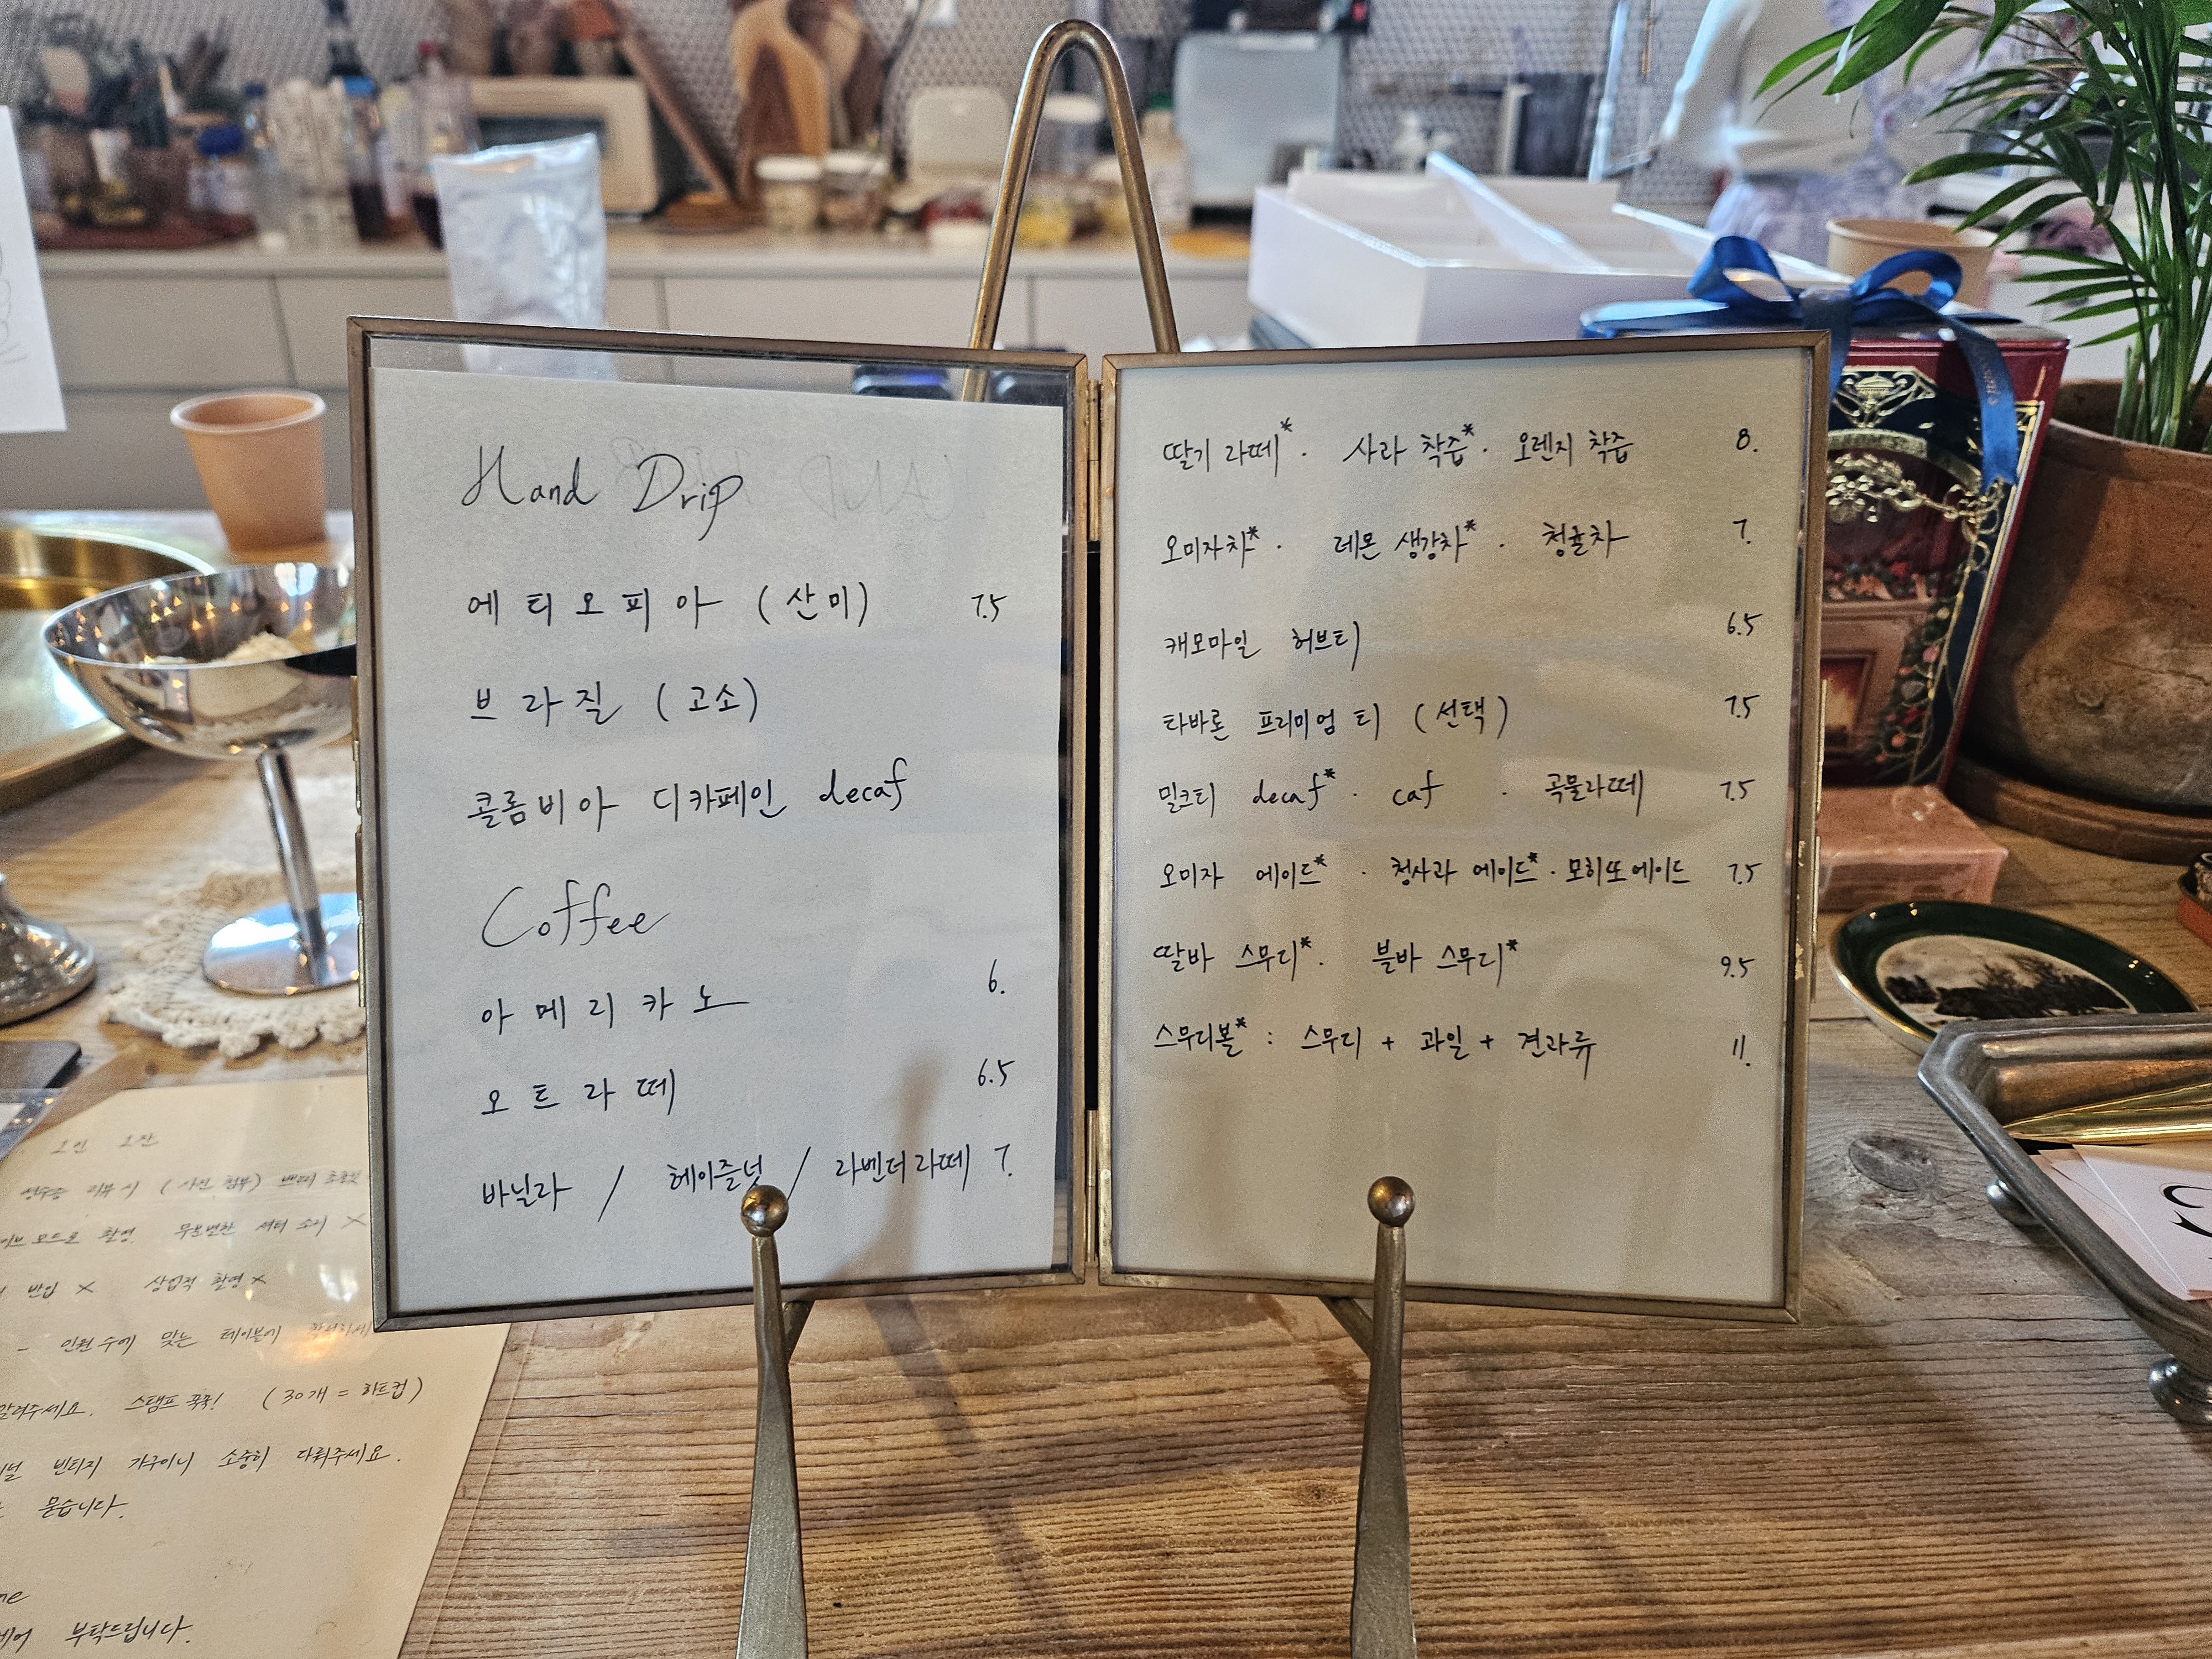 Hand Drip
에티오피아 (산미) 7.5
브라질 (고소)
콜롬비아 디카페인 decaf
Coffee
아메리카노 6.
오트라떼 6.5
바닐라 / 헤이즐넛 / 라벤더라떼 7.
딸기 라떼* · 사과 착즙* · 오렌지 착즙 8.
오미자차* · 레몬 생강차* · 청귤차 7.
캐모마일 허브티 6.5
타바론 프리미엄 티 (선택) 7.5
밀크티 decaf* · caf · 곡물라떼 7.5
오미자 에이드* · 청사과 에이드* · 모히또에이드 7.5
딸바 스무디* · 블바 스무디* 9.5
스무디볼* : 스무디 + 과일 + 견과류 11.
1인 1잔
리뷰 시 (사진 첨부)
모드로 촬영. 무분별한 셔터 소리 X
반입 X 상업적 촬영 X
- 인원수에 맞는 테이블에
스탬프 꾹꾹! (30개 = 하트컵)
빈티지 가구이니 소중히 다뤄주세요.
묻습니다.
부탁드립니다.